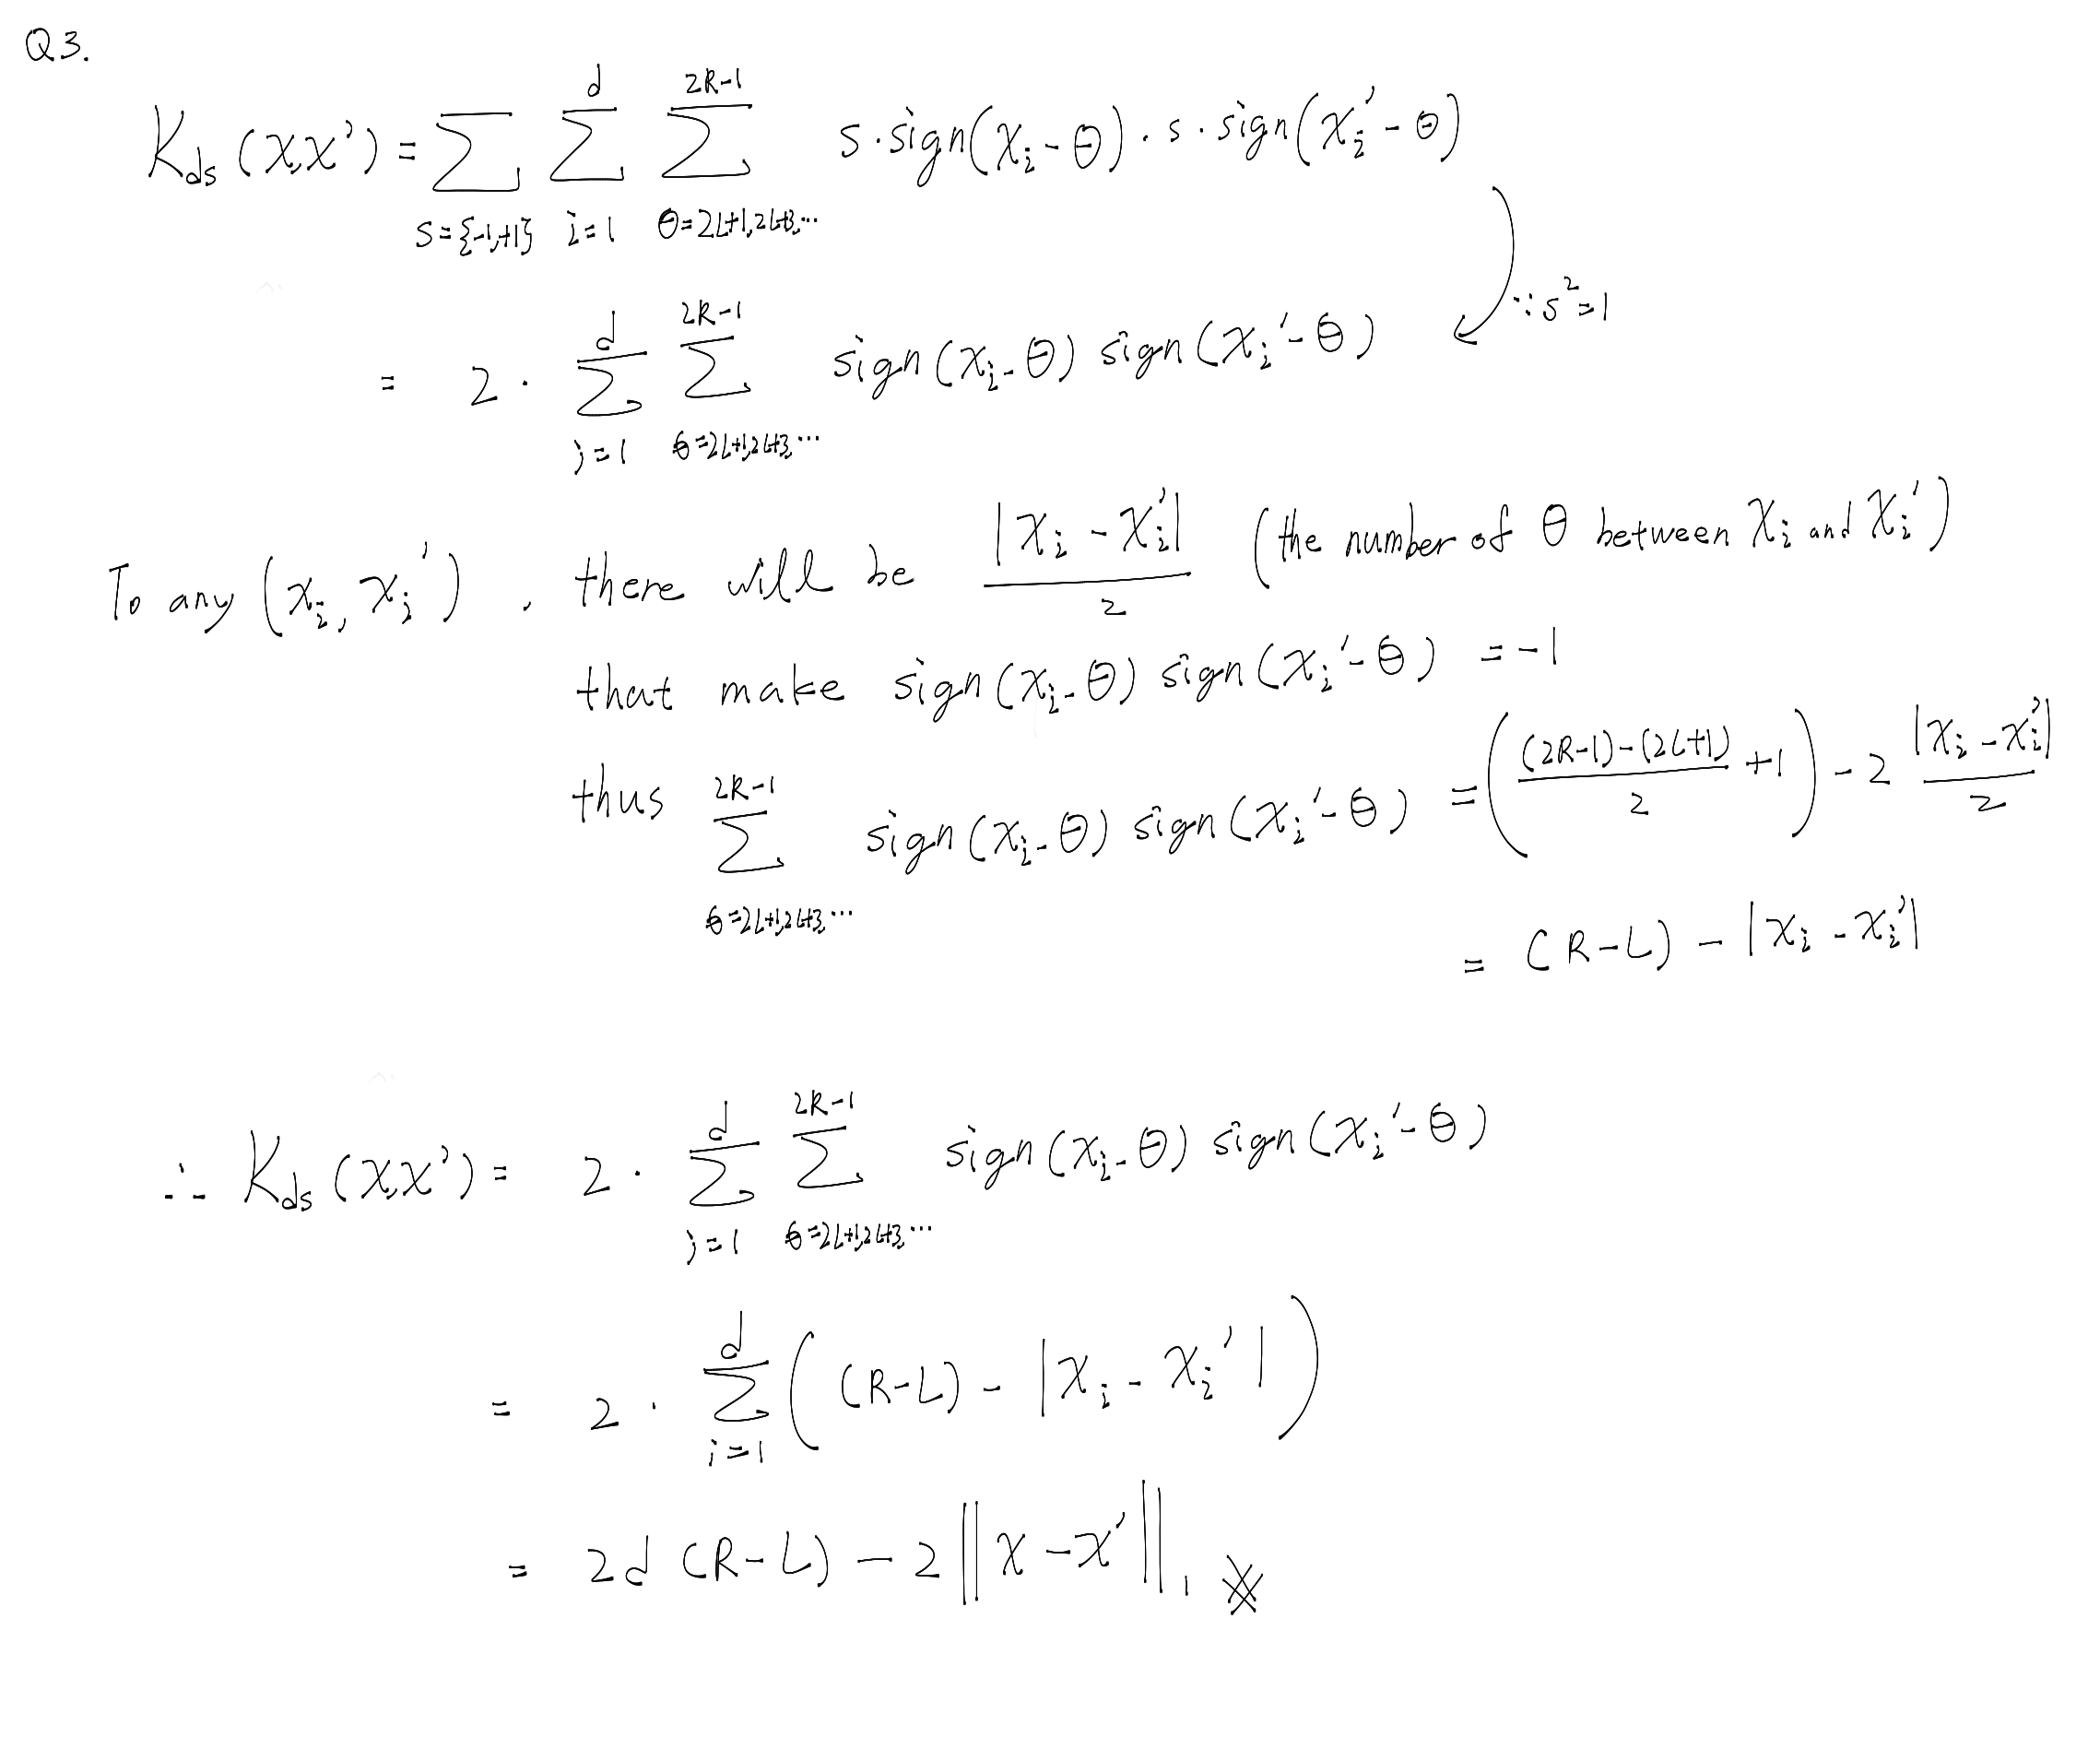 Q3.
K_ds (x,x') = Σ_{s={-1,+1}} Σ_{i=1}^{d} Σ_{θ=2L+1,2L+3,...}^{2R-1} s·sign(x_i-θ)·s·sign(x_i'-θ)
= 2· Σ_{i=1}^{d} Σ_{θ=2L+1,2L+3,...}^{2R-1} sign(x_i-θ) sign(x_i'-θ) ∵ s²=1
To any (x_i, x_i'), there will be |x_i - x_i'|/2 (the number of θ between x_i and x_i')
that make sign(x_i-θ) sign(x_i'-θ) = -1
thus Σ_{θ=2L+1,2L+3,...}^{2R-1} sign(x_i-θ) sign(x_i'-θ) = (((2R-1)-(2L+1))/2 +1) - 2 |x_i - x_i'|/2
= (R-L) - |x_i - x_i'|
∴ K_ds (x,x') = 2· Σ_{i=1}^{d} Σ_{θ=2L+1,2L+3,...}^{2R-1} sign(x_i-θ) sign(x_i'-θ)
= 2· Σ_{i=1}^{d} ((R-L) - |x_i - x_i'|)
= 2d (R-L) - 2||x-x'||_1 ※